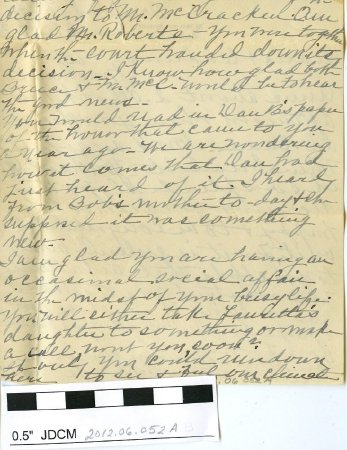 decision to Mr. McCracken. Am
glad Mr. Roberts & you were together
when the court handed down its
decision. I know how glad both
Bruce & Mr. McC. would be to hear
the good news.
You would read in Dan B's paper
of the honor that came to you
a year ago. We are wondering
how it comes that Dan had
just heard of it. I heard
from Bob's mother to-day & she
supposed it was something
new.
I am glad you are having an
occasional social affair
in the midst of your busy life.
You will either take Laurette's
daughter to something or make
a call wont you soon?
you could run down
here to see & our
06 052A
0.5" JDCM 2012.06.052A B